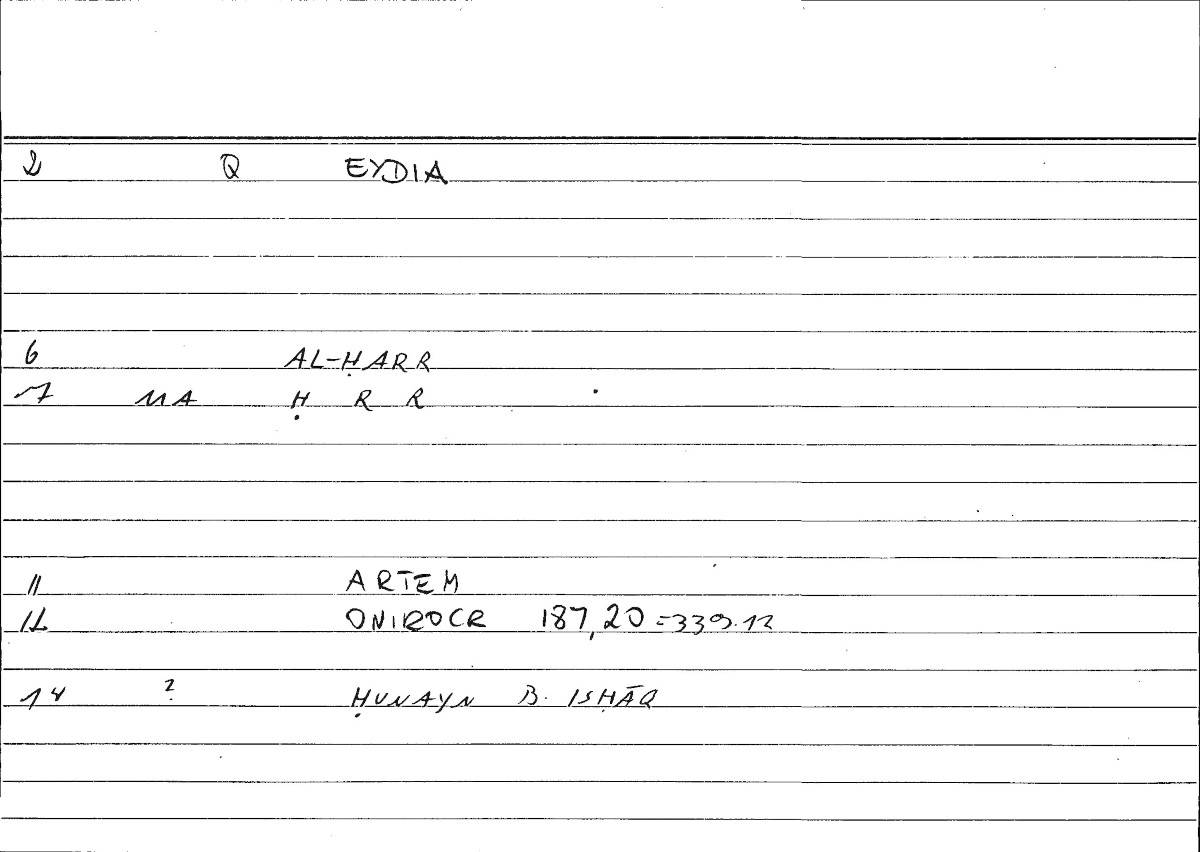 2 Q EYDIA
6 AL-ḤARR
7 MA Ḥ R R
11 ARTEM
12 ONIROCR 187,20 = 339.12
14 2 ḤUNAYN B. ISḤĀQ